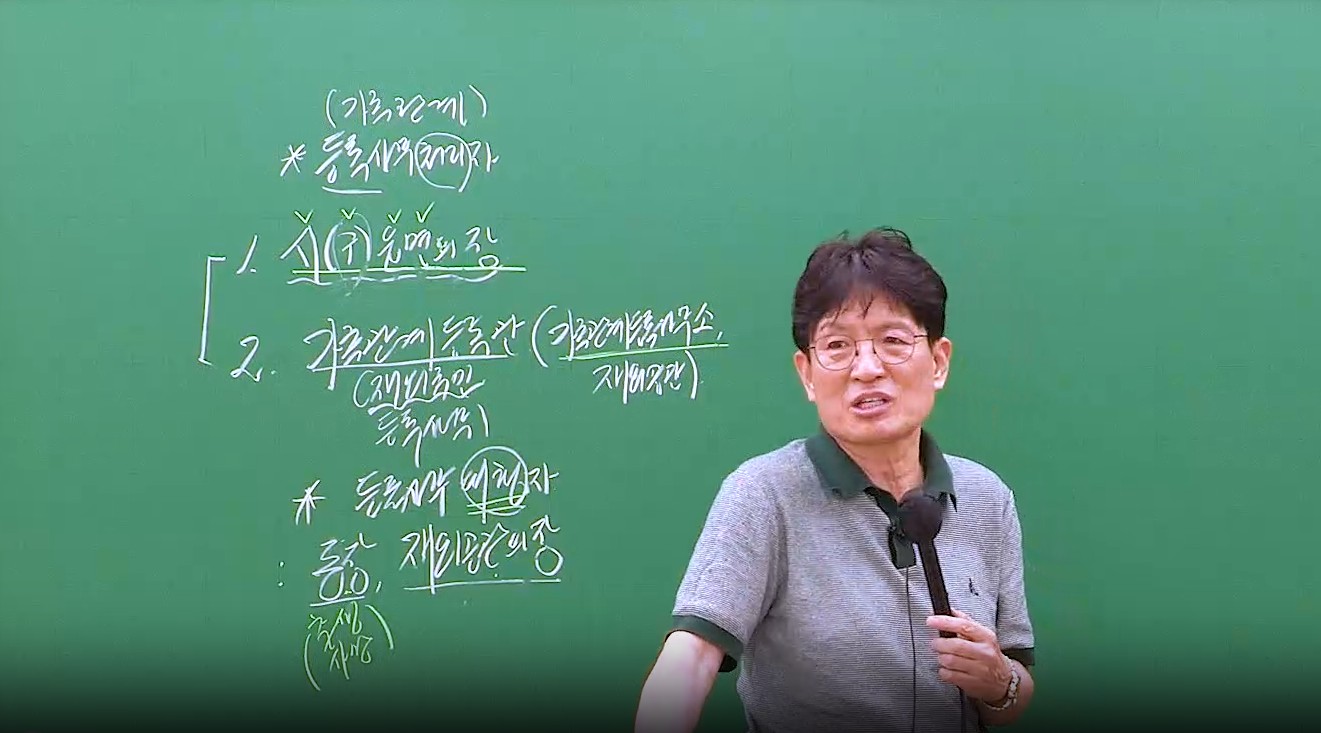 (가족관계)
* 등록사무(처리)자
1. 시(구)읍면의 장
2. 가족관계등록관 (가족관계등록사무소,
재외공관).
(재외국민
등록사무)
* 등록사무 대행자
: 동장, 재외공관의 장
(출생
사망)